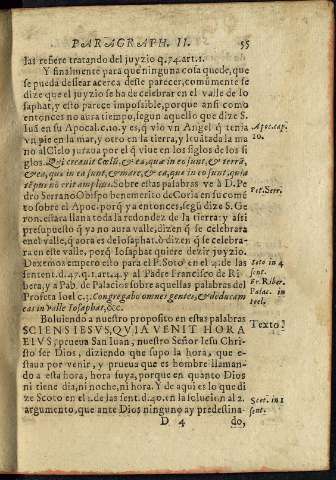 PARAGRAPH. II. 55
las refiere tratando del juyzio q.74.art.1.
Y finalmente para que ninguna cosa quede, que
se pueda dessear acerca deste parecer, comũmente se
dize que el juyzio se ha de celebrar en el valle de Io
saphat, y esto parece impossible, porque ansi como
entonces no aura tiempo, segun aquello que dize S.
Iuã en su Apocal. c.10. y es, q̃ vio vn Angel q̃ tenia
vn pie en la mar, y otro en la tierra, y leuãtada la ma
no al Cielo juraua por el q̃ viue en los siglos de los si
glos. Qui creauit Cœlũ, & ea, quæ in eo sunt, & terrã,
& ea, quæ in ea sunt, & mare, & ea, quæ in eo sunt, quia
tẽpus nõ erit amplius. Sobre estas palabras ve à D. Pe
dro Serrano Obispo benemerito de Coria en su comẽ
to sobre el Apoc. porq̃ ya entonces, segũ dize S. Ge
ron. estarà llana toda la redondez de la tierra: y assi
presupuesto q̃ ya no aura valle, dizen q̃ se celebrara
en el valle, q̃ aora es de Iosaphat. ò dizen q̃ se celebra-
ra en este valle, porq̃ Iosaphat quiere dezir juyzio.
Dexemos empero esto para el P. Soto en el 4. de las
sentent. d.47. q.1. art.4. y al Padre Francisco de Ri
bera, y a Pab. de Palacios sobre aquellas palabras del
Profeta Ioel c.3. Congregabo omnes gentes, & deducam
eas in valle Iosaphat, &c.
Boluiendo a nuestro proposito en estas palabras
SCIENS IESVS, QVIA VENIT HORA
EIVS, prueua San Iuan, nuestro Señor Iesu Chri
sto ser Dios, diziendo que supo la hora, que e-
staua por venir, y prueua que es hombre llaman-
do a esta hora, hora suya, porque en quanto Dios
ni tiene dia, ni noche, ni hora. Y de aqui es lo que di
ze Scoto en el 1. de las sent. d.40. en la solucion al 2.
argumento, que ante Dios ninguno ay predestina-
D 4 do,
Apoc. cap.
10.
Pet. Serr.
Soto in 4
sent.
Fr. Riber.
Palac. in
Ioel.
Texto.
Scot. in 1
sent.